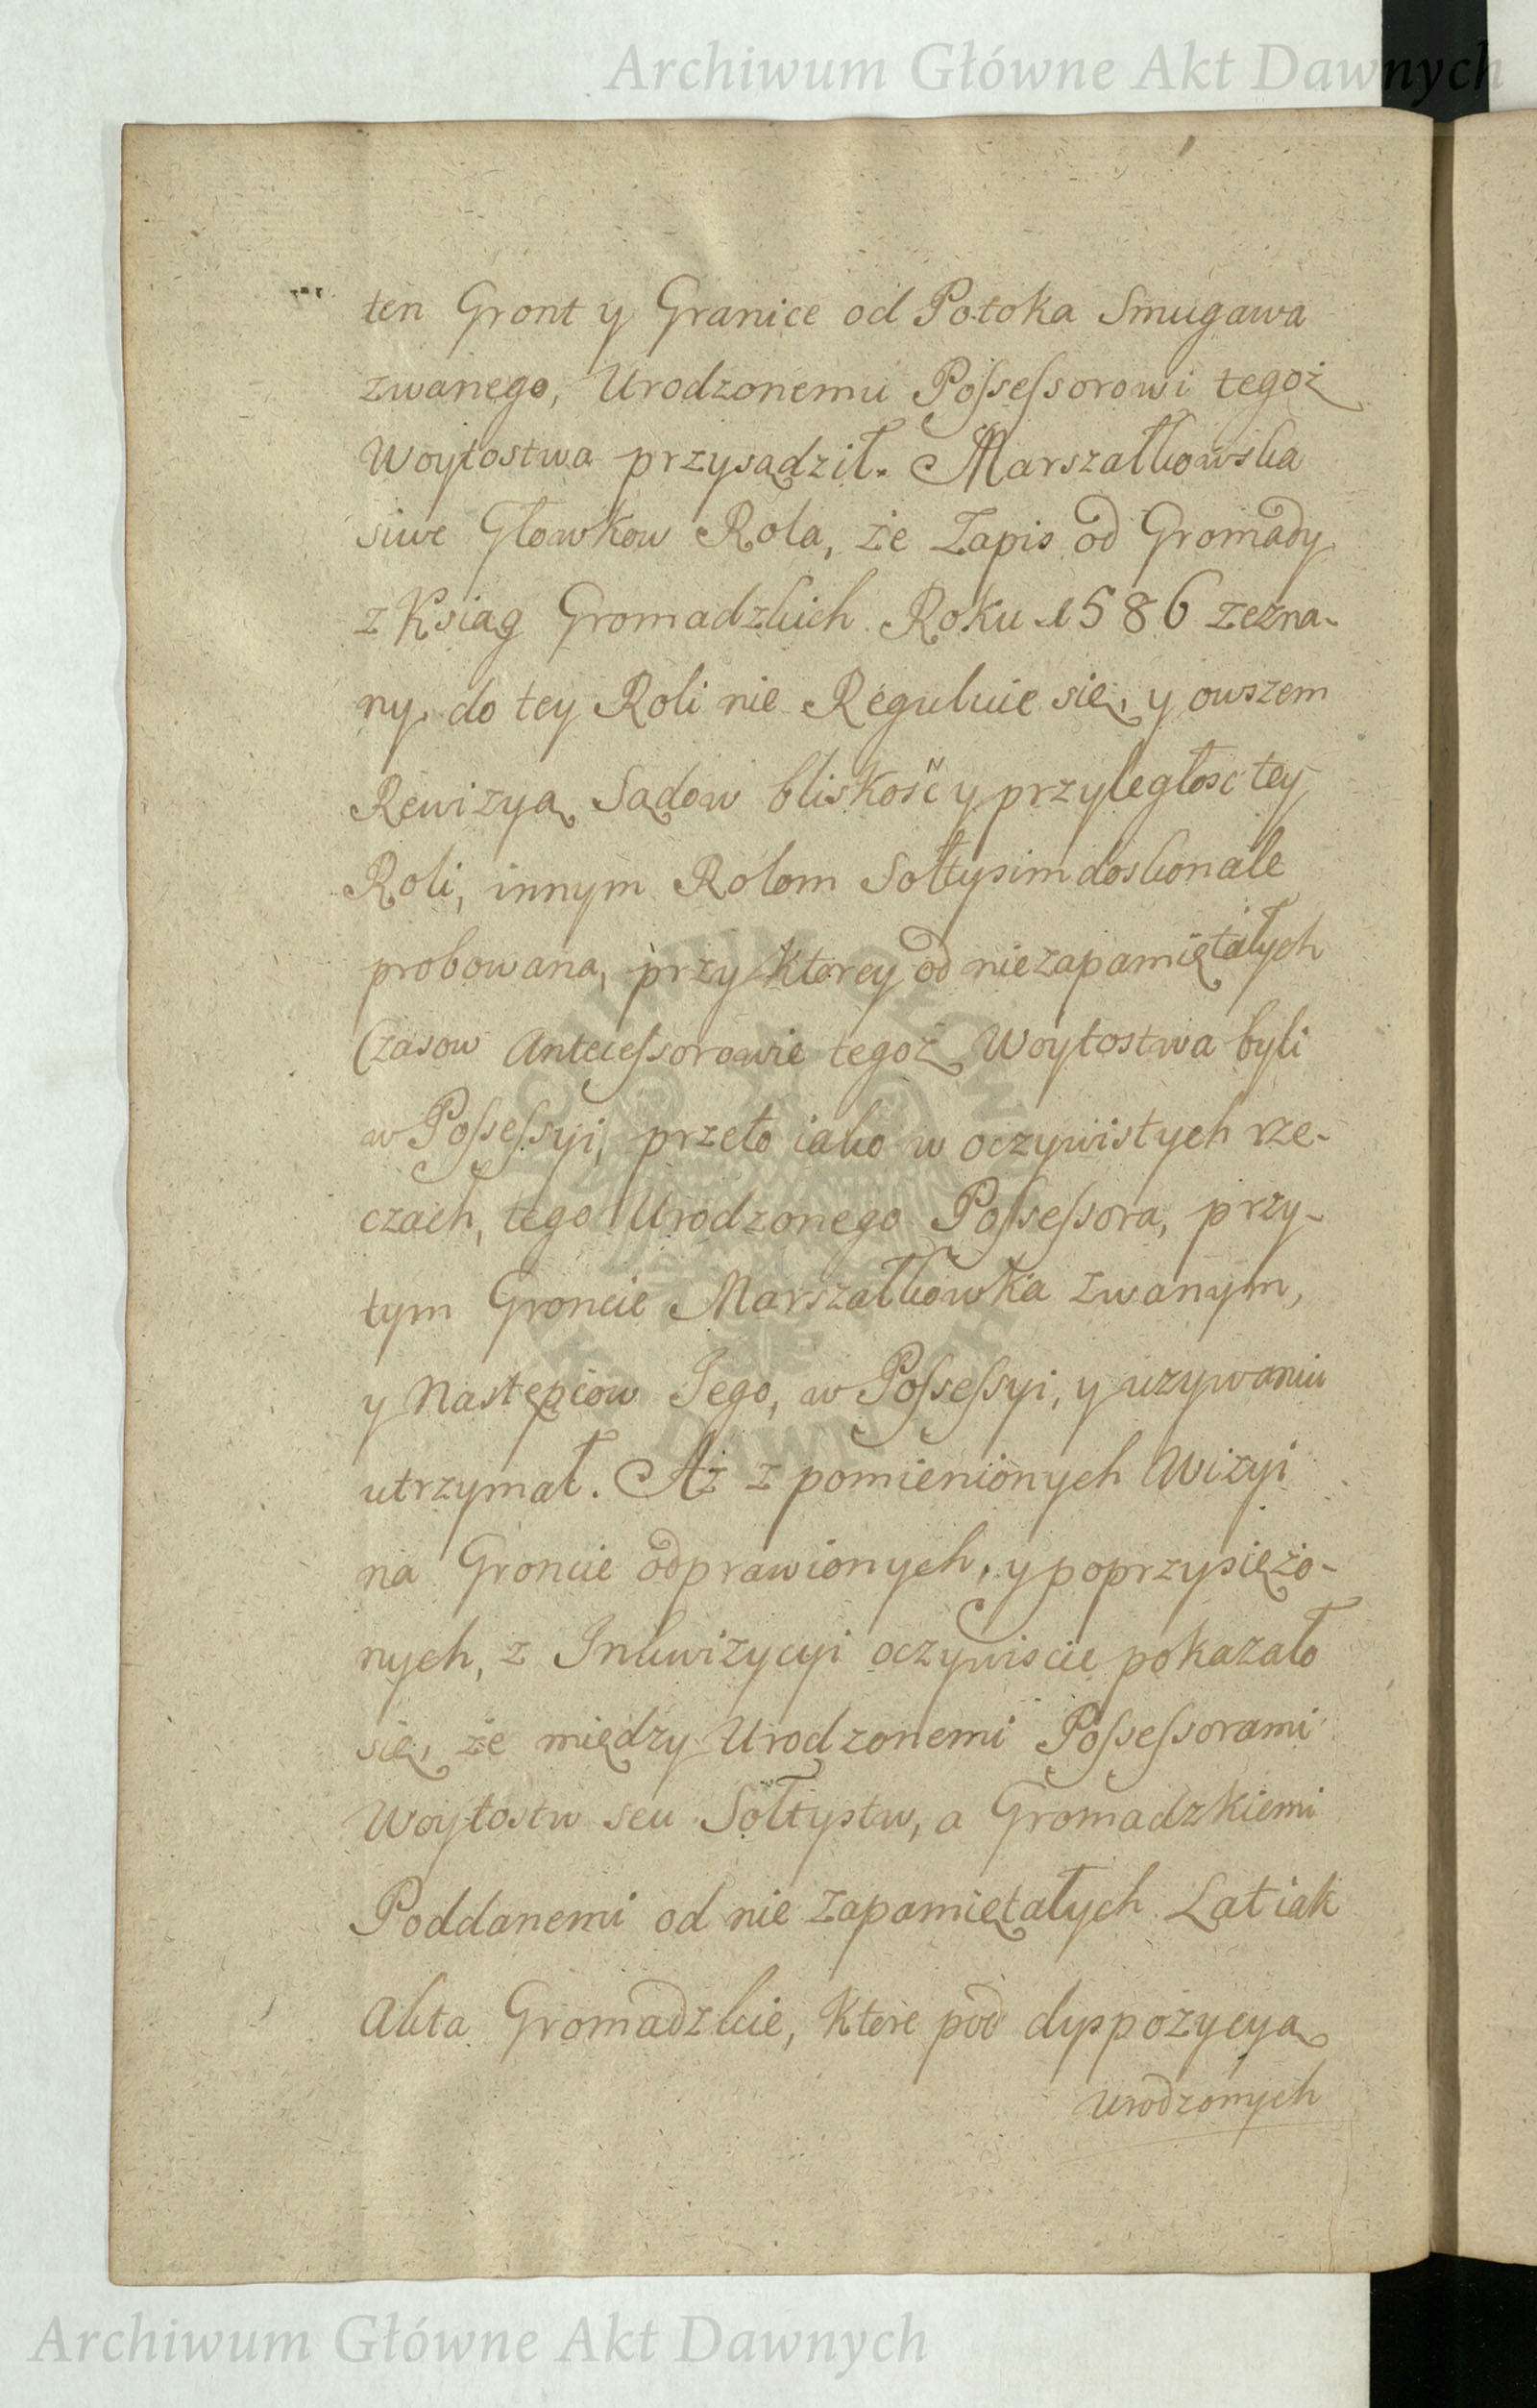 Archiwum Główne Akt Dawnych
ten Gront y Granice od Potoka Smugawa
zwanego, Urodzonemu Possessorowi tegoż
Woytostwa przysądził. Marszałkowska
siwe Głowkow Rola, że Zapis od Gromady
z Ksiąg Gromadzkich Roku 1586 zezna-
ny do tey Roli nie Reguluie się, y owszem
Rewizyą Sądow bliskość y przyległosc tey
Roli, innym Rolom Sołtysim doskonale
probowana, przy ktorey od niezapamiętałych
Czasow Antecessorowie tegoż Woytostwa byli
w Possessyi, przeto iako w oczywistych rze-
czach, tego Urodzonego Possessora, przy-
tym Groncie Marszałkowka zwanym,
y Następcow Jego, w Possessyi, y uzywaniu
utrzymał. Aż z pomienionych Wizyi
na Groncie odprawionych, y poprzysiężo-
nych, z Inkwizycyi oczywiscie pokazało
się, że między Urodzonemi Possessorami
Woytostw seu Sołtystw, a Gromadzkiemi
Poddanemi od nie zapamiętałych Lat iak
Akta Gromadzkie, ktore pod dyspozycyą
Urodzonych
Archiwum Główne Akt Dawnych